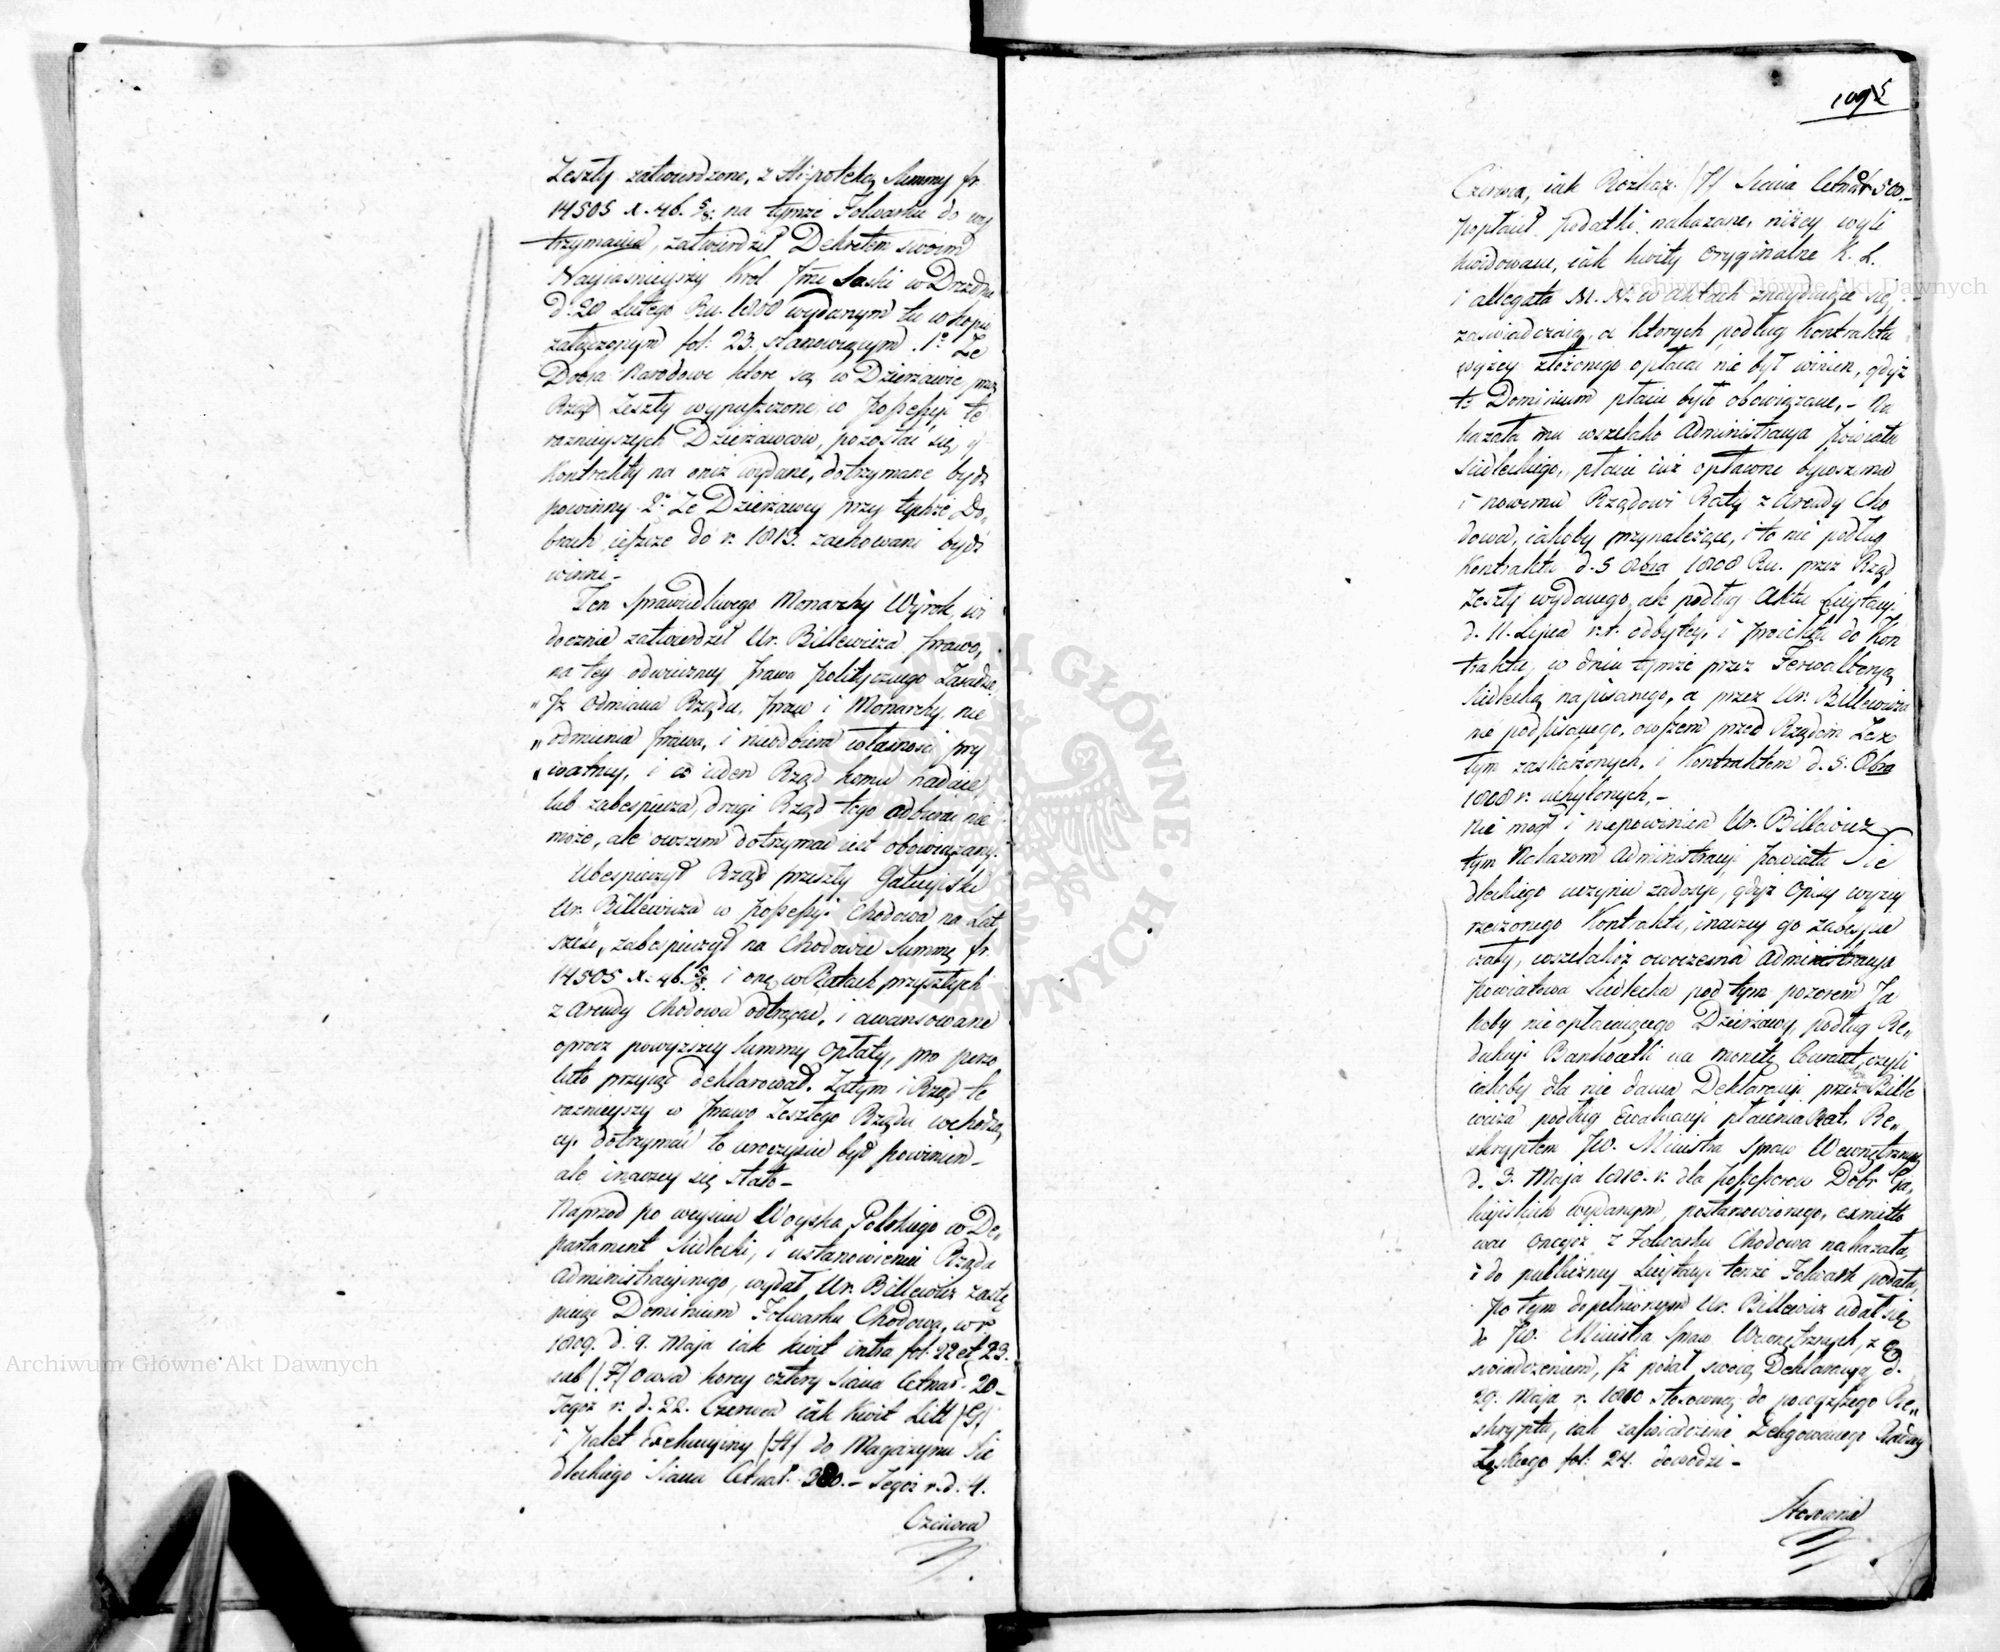 Zeszły zatwierdzone, z Hipoteką Summy fr.
14505 x. 46. 5/8. na tymże Folwarku do wy
trzymania, zatwierdził Dekretem swoim
Nayiaśnieyszy Krol Jmć Saski w Dreźdnie
d. 20 Lutego Ru. 1810 wydanym tu w kopii
załączonym fol: 23. stanowiącym. 1º Że
Dobra Narodowe które są w Dzierzawie przez
Rząd Zeszły wypuszczone, w possessyi te
raznieyszych Dzierżawców, pozostać się, y
Kontrakty na oneż wydane, dotrzymane bydź
powinny 2º Że Dzierżawcy przy tychże Do„
brach ieszcze do r. 1813. zachowani bydź
winni –
Ten Sprawiedliwego Monarchy Wyrok, wi
docznie zatwierdził Ur. Billewicza prawo,
na tey odwieczney prawa politycznego Zasadzie
„Iż odmiana Rządu, praw i Monarchy, nie
„odmienia prawa, i nieodbiera własności pry
„watney, i co ieden Rząd komu nadaie,
lub zabespiecza, drugi Rząd tego odbierać nie
może, ale owszem dotrzymać iest obowiązany.
Ubespieczył Rząd przeszły Galicyiski
Ur. Billewicza w possessyi Chodowa na Lat
sześć, zabespieczył na Chodowie Summę fr.
14505 x: 46. 5/8. i onę w Ratach przyszłych
z Arendy Chodowa odtrącać, i awansowane
oprócz powyższey Summy Opłaty, pro perso
luto przyjąć deklarował. Zatym i Rząd te
raznieyszy w prawo Zeszłego Rządu wchodzą
cy, dotrzymać to uroczyście był powinien –
ale inaczey się stało –
Naprzód po weyściu Woyska Polskiego w De„
partament Siedlecki, i ustanowieniu Rządu
Administracyinego, wydał Ur. Billewicz zastę
piając Dominium Folwarku Chodowa, w r
1809. d. 9. Maja iak kwit intra fol. 22 et 23.
sub (F) Owsa korcy cztery Siana Cetnar. 20 –
Tegoż r. d. 22. Czerwca iak Kwit Litt (G)
i palet Exekucyiny (H) do Magazynu Sie
dleckiego Siana Cetnar. 300. – Tegoż r. d. 4.
Czerwca
109
Czerwca, iak Rozkaz. (I) Siana Cetnar 500. –
popłacił podatki nakazane, niżey wyli
kwidowane, iak kwity oryginalne K. L.
i allegata M. N. w aktach znayduiące się,
zaświadczaią, a których podług Kontraktu
wyżey złożonego opłacać nie był winien, gdyż
te Dominium płacić było obowiązane. – Na
kazała mu wszelako Administracya powiatu
Siedleckiego, płacić iuż opłacone bywszemu
i nowemu Rządowi Raty z Arendy Cho
dowa, iakoby przynależące, i to nie podług
Kontraktu d. 5 8bra 1808 Ru. przez Rząd
Zeszły wydanego, ale podług Aktu Licytacyi
d. 11. Lipca r.t. odbytey, i proiektu do Kon
traktu, w dniu tymże przez Ferwalteryą
Siedlecką napisanego, a przez Ur. Billewicza
nie podpisanego, owszem przed Rządem Zesz
łym zaskarżonych, i Kontraktem d. 5. 8bra
1808 r. uchylonych. –
Nie mógł i niepowinien Ur. Billewicz
tym Nakazom Administracyi powiatu Sie
dleckiego uczynić zadosyć, gdyż opisy wyżey
rzeczonego Kontraktu, inaczey go zabespie
czały, wszelakoż owoczesna Administracya
powiatowa Siedlecka pod tym pozorem Ja
koby nieopłacaiącego Dzierżawy, podług Re„
dukcyi Bankocetli na monetę Courant, czyli
iakoby dla nie dania Deklaracyi przez Bille
wicza podług Ewaluacyi płacenia Rat. Re„
skryptem JW. Ministra Spraw Wewnętrznych
d. 3. Maja 1810. r. dla possessorów Dóbr Ga„
licyiskich wydanym, postanowionego, exmitto
wać onegoż z Folwarku Chodowa nakazała,
i do publiczney Licytacyi tenże Folwark podała,
po tym dopełnionym Ur. Billewicz udał się
do JW. Ministra Spraw Wewnętrznych, z
świadczeniem, iż podał swoią Deklaracyą d.
29. Maja r. 1810 stosowną do powyższego Re„
skryptu, iak zaświadczenie Delegowanego Radzcy
Łęskiego fol: 24. dowodzi –
Stosownie
Archiwum Główne Akt Dawnych
Archiwum Główne Akt Dawnych